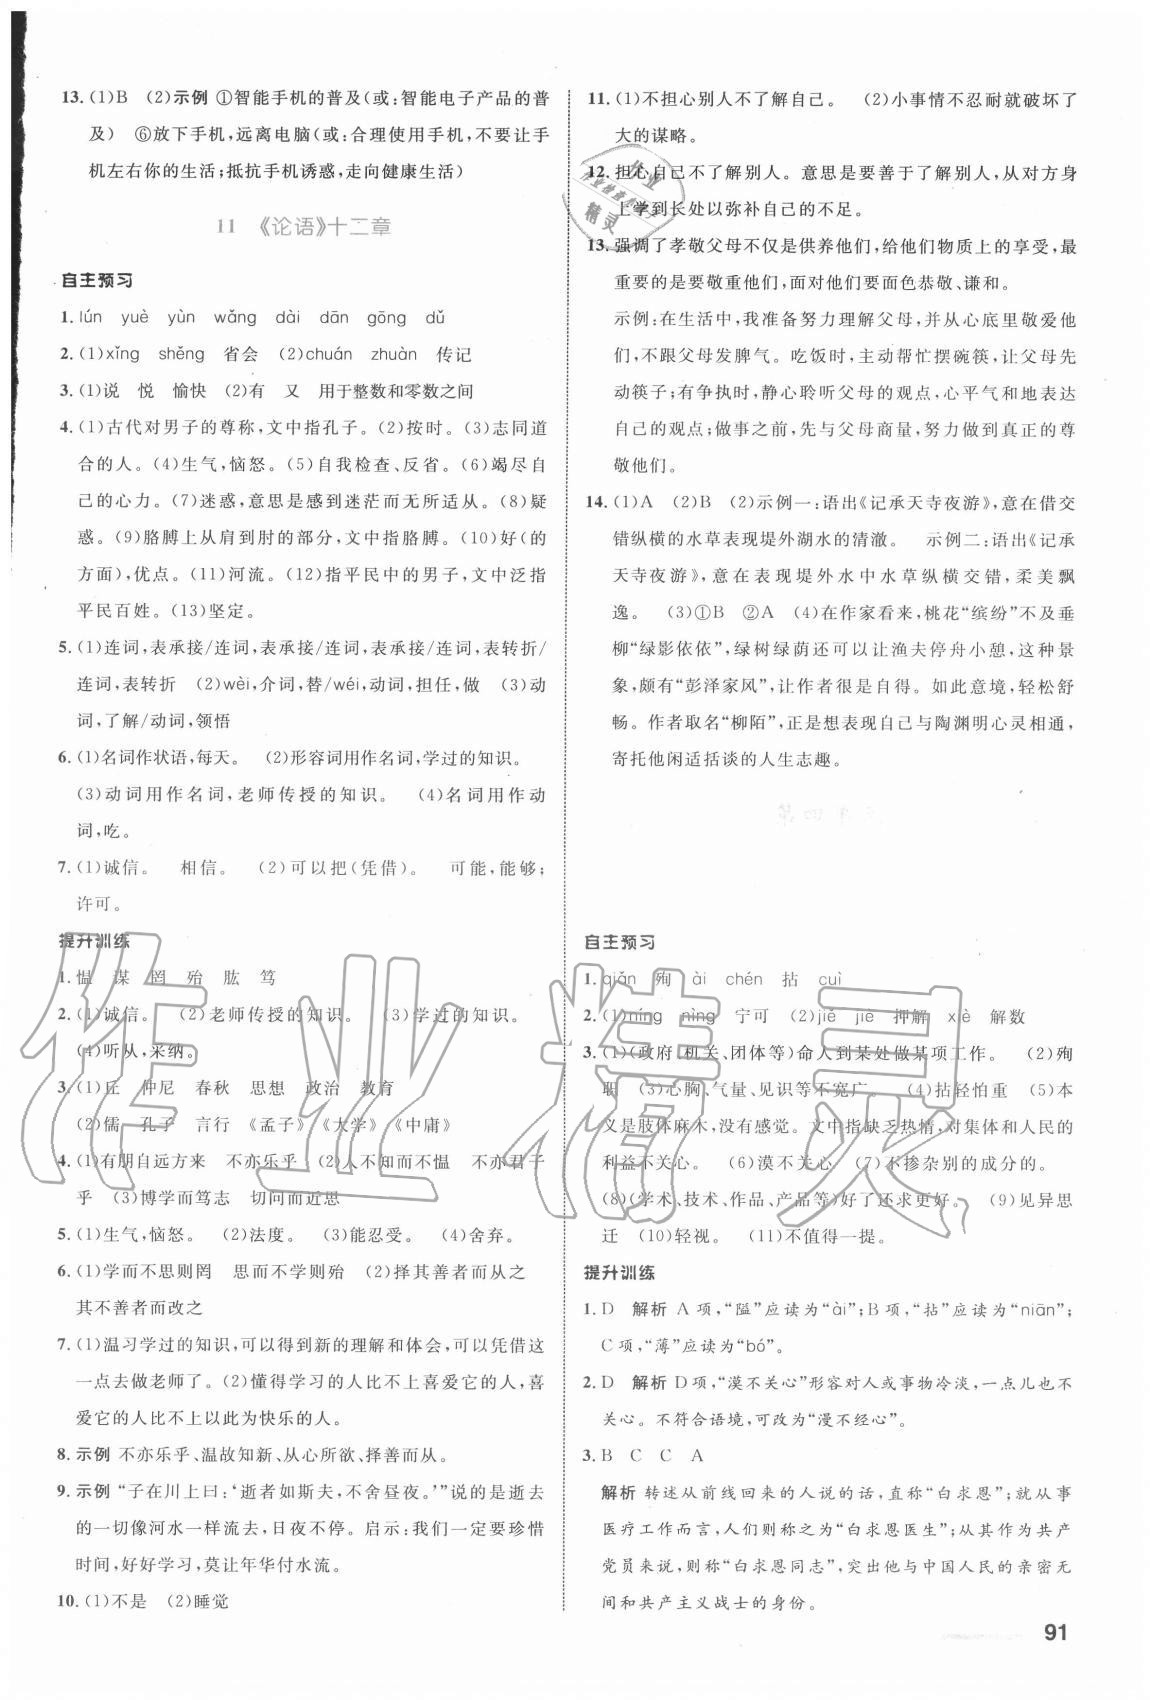 13. (1)B (2)示例 ①智能手机的普及(或:智能电子产品的普
及) ⑥放下手机,远离电脑(或:合理使用手机,不要让手
机左右你的生活;抵抗手机诱惑,走向健康生活)
11 《论语》十二章
自主预习
1. lún yuè yùn wǎng dài dān gōng dǔ
2. (1)xǐng shěng 省会 (2)chuán zhuàn 传记
3. (1)说 悦 愉快 (2)有 又 用于整数和零数之间
4. (1)古代对男子的尊称,文中指孔子。(2)按时。(3)志同道
合的人。(4)生气,恼怒。(5)自我检查、反省。(6)竭尽自
己的心力。(7)迷惑,意思是感到迷茫而无所适从。(8)疑
惑。(9)胳膊上从肩到肘的部分,文中指胳膊。(10)好(的
方面),优点。(11)河流。(12)指平民中的男子,文中泛指
平民百姓。(13)坚定。
5. (1)连词,表承接/连词,表承接/连词,表转折/连词,表转折/
连词,表转折 (2)wèi,介词,替/wéi,动词,担任,做 (3)动
词,了解/动词,领悟
6. (1)名词作状语,每天。 (2)形容词用作名词,学过的知识。
(3)动词用作名词,老师传授的知识。 (4)名词用作动
词,吃。
7. (1)诚信。 相信。 (2)可以把(凭借)。 可能,能够;
许可。
提升训练
1. 愠 谋 罔 殆 肱 笃
2. (1)诚信。 (2)老师传授的知识。 (3)学过的知识。
(4)听从,采纳。
3. (1)丘 仲尼 春秋 思想 政治 教育
(2)儒 孔子 言行 《孟子》《大学》《中庸》
4. (1)有朋自远方来 不亦乐乎 (2)人不知而不愠 不亦君子
乎 (3)博学而笃志 切问而近思
5. (1)生气,恼怒。 (2)法度。 (3)能忍受。 (4)舍弃。
6. (1)学而不思则罔 思而不学则殆 (2)择其善者而从之
其不善者而改之
7. (1)温习学过的知识,可以得到新的理解和体会,可以凭借这
一点去做老师了。(2)懂得学习的人比不上喜爱它的人,喜
爱它的人比不上以此为快乐的人。
8. 示例 不亦乐乎、温故知新、从心所欲、择善而从。
9. 示例 “子在川上曰:‘逝者如斯夫,不舍昼夜。’”说的是逝去
的一切像河水一样流去,日夜不停。启示:我们一定要珍惜
时间,好好学习,莫让年华付水流。
10. (1)不是 (2)睡觉
11. (1)不担心别人不了解自己。 (2)小事情不忍耐就破坏了
大的谋略。
12. 担心自己不了解别人。意思是要善于了解别人,从对方身
上学到长处以弥补自己的不足。
13. 强调了孝敬父母不仅是供养他们,给他们物质上的享受,最
重要的是要敬重他们,面对他们要面色恭敬、谦和。
示例:在生活中,我准备努力理解父母,并从心底里敬爱他
们,不跟父母发脾气。吃饭时,主动帮忙摆碗筷,让父母先
动筷子;有争执时,静心聆听父母的观点,心平气和地表达
自己的观点;做事之前,先与父母商量,努力做到真正的尊
敬他们。
14. (1)A (2)B (2)示例一:语出《记承天寺夜游》,意在借交
错纵横的水草表现堤外湖水的清澈。 示例二:语出《记承
天寺夜游》,意在表现堤外水中水草纵横交错,柔美飘
逸。 (3)①B ②A (4)在作家看来,桃花“缤纷”不及垂
柳“绿影依依”,绿树绿荫还可以让渔夫停舟小憩,这种景
象,颇有“彭泽家风”,让作者很是自得。如此意境,轻松舒
畅。作者取名“柳陌”,正是想表现自己与陶渊明心灵相通,
寄托他闲适括谈的人生志趣。
自主预习
1. qiǎn 殉 ài chén 拈 cuì
2. (1)níng nìng 宁可 (2)jiě jiè 押解 xè 解数
3. (1)(政府、机关、团体等)命人到某处做某项工作。 (2)殉
职 (3)心胸、气量、见识等不宽广 (4)拈轻怕重 (5)本
义是肢体麻木,没有感觉。文中指缺乏热情,对集体和人民的
利益不关心。 (6)漠不关心 (7)不掺杂别的成分的。
(8)(学术、技术、作品、产品等)好了还求更好。 (9)见异思
迁 (10)轻视。 (11)不值得一提。
提升训练
1. D 解析 A项,“隘”应读为“ài”;B项,“拈”应读为“niān”;
C项,“薄”应读为“bó”。
2. D 解析 D项,“漠不关心”形容对人或事物冷淡,一点儿也不
关心。不符合语境,可改为“漫不经心”。
3. B C C A
解析 转述从前线回来的人说的话,直称“白求恩”;就从事
医疗工作而言,人们则称之为“白求恩医生”;从其作为共产
党员来说,则称“白求恩同志”,突出他与中国人民的亲密无
间和共产主义战士的身份。
91
作业精灵